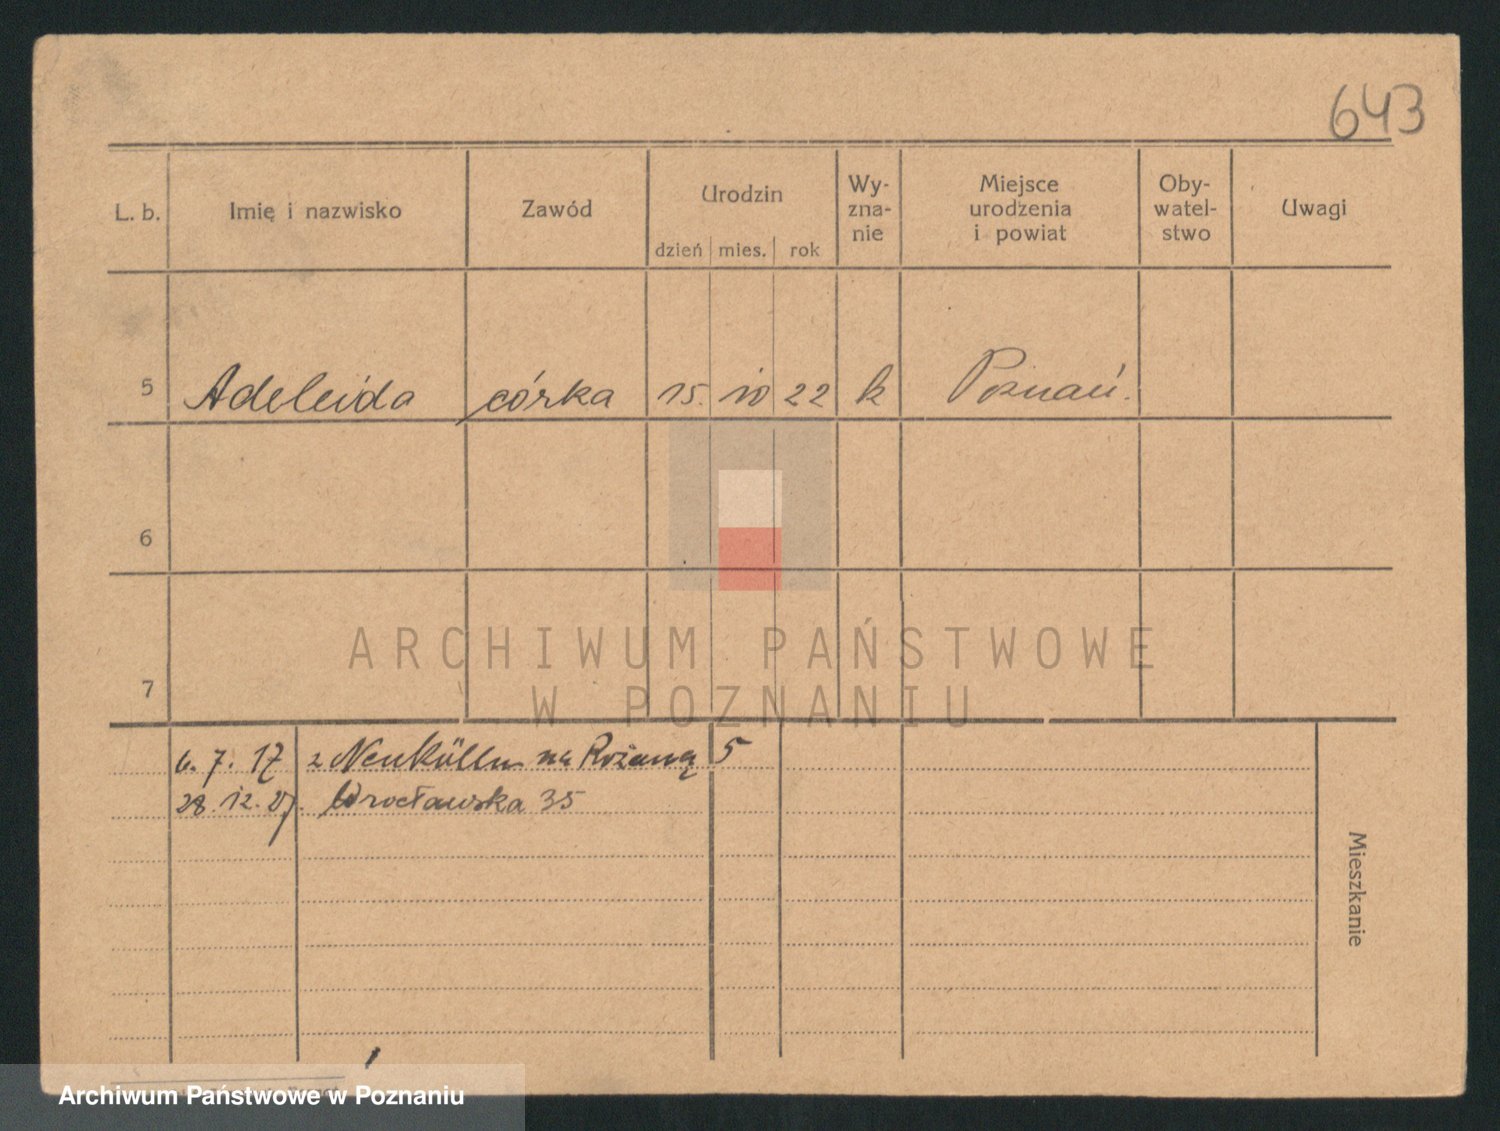 643
L. b. Imię i nazwisko Zawód Urodzin dzień mies. rok Wy-zna-nie Miejsce urodzenia i powiat Oby-watel-stwo Uwagi
5 Adeleida córka 15. 10 22 k Poznań.
6
7
ARCHIWUM PAŃSTWOWE
W POZNANIU
6. 7. 17 z Neukölln na Różaną 5
28. 12. 27. Wrocławska 35
Mieszkanie
Archiwum Państwowe w Poznaniu